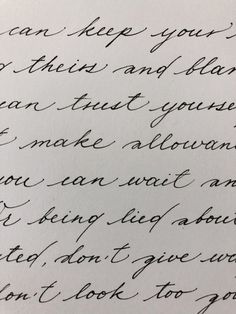 can keep your
theirs and blam
can trust yourse
make allowan
you can wait an
Or being lied about
ted, don't give wa
don't look too go